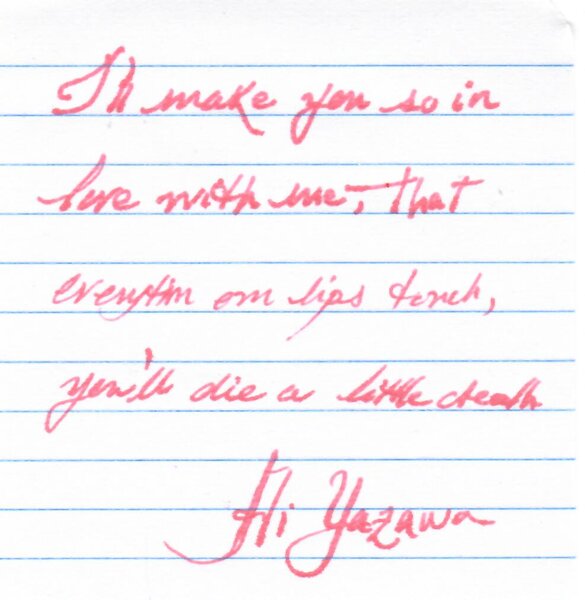 I'll make you so in
love with me, that
everytim our lips touch,
you'll die a little death
Ai Yazawa